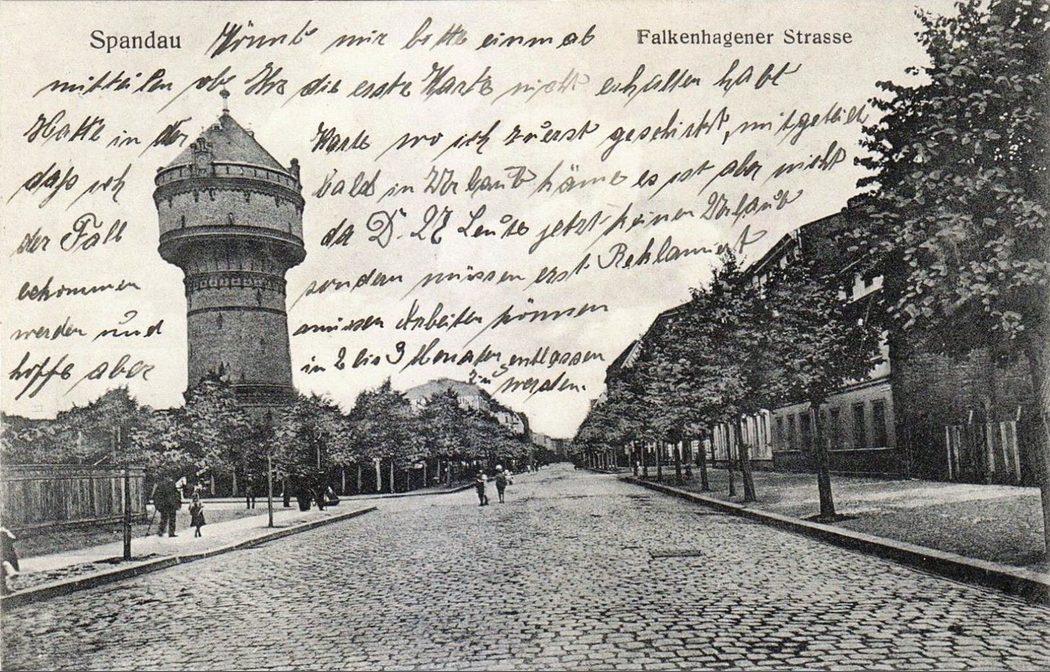 Spandau
Falkenhagener Strasse
Könnt mir bitte einmal
mitteilen ob Ihr die erste Karte nicht erhalten habt
Hatte in der Karte wo ich zuerst geschickt, mitgeteilt
daß ich bald in Urlaub käme es ist aber nicht
der Fall da D. U. Leute jetzt keinen Urlaub
bekommen sondern müssen erst Reklamiert
werden und müssen Arbeiten können
hoffe aber in 2 bis 3 Monaten entlassen
zu werden.